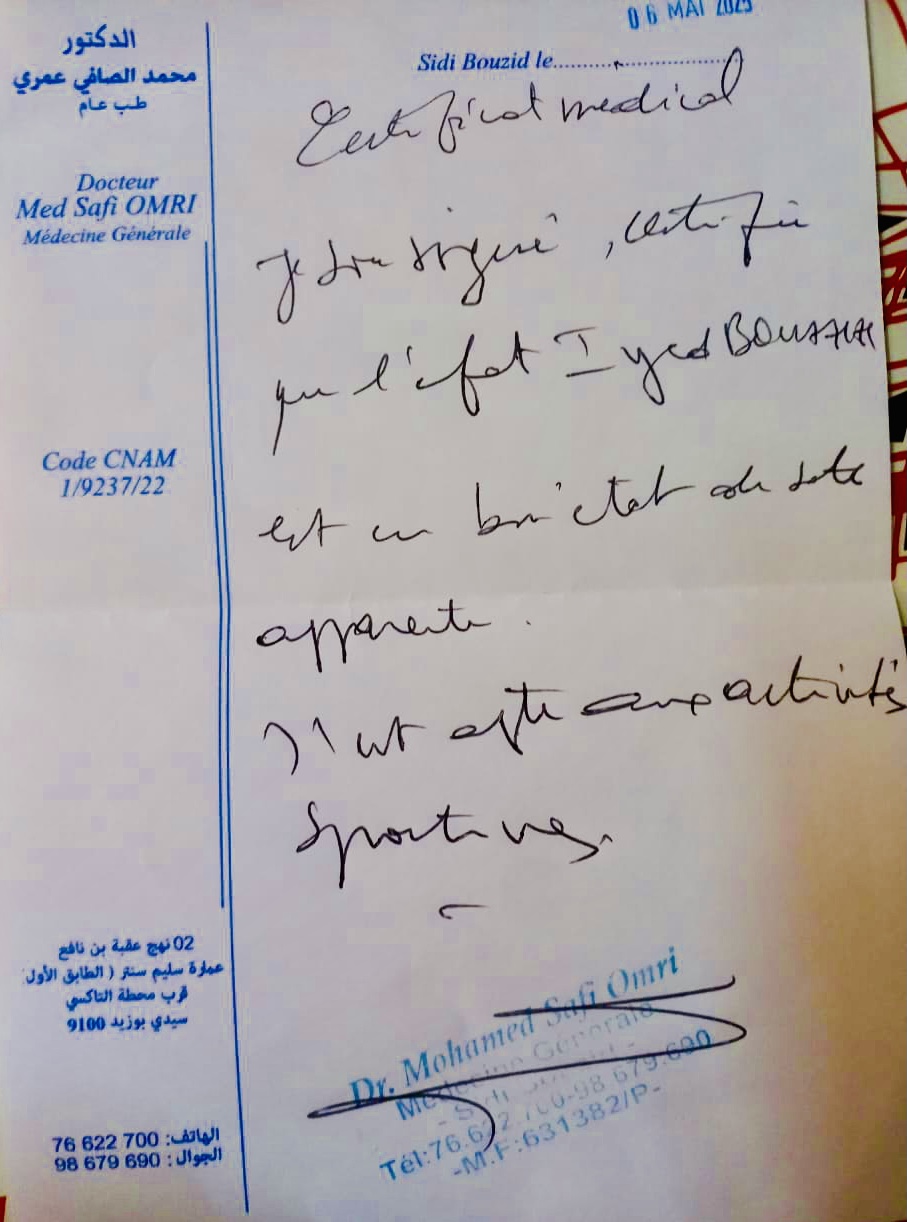 06 MAI 2025
الدكتور
محمد الصافي عمري
طب عام
Docteur
Med Safi OMRI
Médecine Générale
Code CNAM
1/9237/22
02 نهج عقبة بن نافع
عمارة سليم سنتر ( الطابق الأول
قرب محطة التاكسي
سيدي بوزيد 9100
الهاتف: 76 622 700
الجوال : 98 679 690
Sidi Bouzid le
Certificat medical
Je soussigné , certifie
que l'enfant Iyed
est en bon état de santé
apparente .
Il est apte aux activités
Sportives.
Dr. Mohamed Safi Omri
Médecine Générale
- Sidi Bouzid -
Tél:76.622 700-98 679.690
-M.F:631382/P-